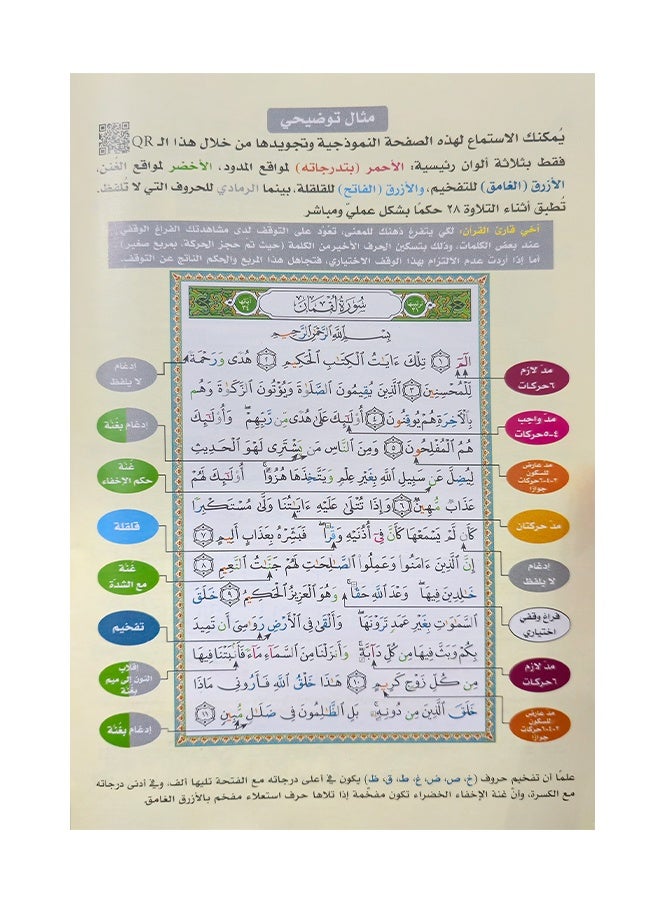 مثال توضيحي
يُمكنك الاستماع لهذه الصفحة النموذجية وتجويدها من خلال هذا الـ QR
فقط بثلاثة ألوان رئيسية: الأحمر (بتدرجاته) لمواقع المدود، الأخضر لمواقع الغنن،
الأزرق (الغامق) للتفخيم، والأزرق (الفاتح) للقلقلة، بينما الرمادي للحروف التي لا تُلفظ.
تُطبق أثناء التلاوة ٢٨ حكمًا بشكل عمليّ ومباشر
أخي قارئ القرآن: لكي يتفرغ ذهنك للمعنى، تعوّد على التوقف لدى مشاهدتك الفراغ الوقفي
عند بعض الكلمات، وذلك بتسكين الحرف الأخير من الكلمة (حيث تم حجز الحركة، بمربع صغير)
أما إذا أردت عدم الالتزام بهذا الوقف الاختياري، فتجاهل هذا المربع والحكم الناتج عن التوقف.
ترتيبها ٣١
سُورَةُ لُقْمَان
آياتها ٣٤
بِسْمِ اللَّهِ الرَّحْمَنِ الرَّحِيمِ
الٓمٓ ١ تِلْكَ ءَايَاتُ الْكِتَابِ الْحَكِيمِ ٢ هُدًى وَرَحْمَةً
لِلْمُحْسِنِينَ ٣ الَّذِينَ يُقِيمُونَ الصَّلَوٰةَ وَيُؤْتُونَ الزَّكَوٰةَ وَهُم
بِالْآخِرَةِ هُمْ يُوقِنُونَ ٤ أُوْلَٰٓئِكَ عَلَىٰ هُدًى مِّن رَّبِّهِمْ وَأُوْلَٰٓئِكَ
هُمُ الْمُفْلِحُونَ ٥ وَمِنَ النَّاسِ مَن يَشْتَرِى لَهْوَ الْحَدِيثِ
لِيُضِلَّ عَن سَبِيلِ اللَّهِ بِغَيْرِ عِلْمٍ وَيَتَّخِذَهَا هُزُوًا أُوْلَٰٓئِكَ لَهُمْ
عَذَابٌ مُّهِينٌ ٦ وَإِذَا تُتْلَىٰ عَلَيْهِ ءَايَاتُنَا وَلَّىٰ مُسْتَكْبِرًا
كَأَن لَّمْ يَسْمَعْهَا كَأَنَّ فِىٓ أُذُنَيْهِ وَقْرًا فَبَشِّرْهُ بِعَذَابٍ أَلِيمٍ ٧
إِنَّ الَّذِينَ ءَامَنُوا وَعَمِلُوا الصَّالِحَاتِ لَهُمْ جَنَّاتُ النَّعِيمِ ٨
خَالِدِينَ فِيهَا وَعْدَ اللَّهِ حَقًّا وَهُوَ الْعَزِيزُ الْحَكِيمُ ٩ خَلَقَ
السَّمَاوَاتِ بِغَيْرِ عَمَدٍ تَرَوْنَهَا وَأَلْقَىٰ فِى الْأَرْضِ رَوَاسِىَ أَن تَمِيدَ
بِكُمْ وَبَثَّ فِيهَا مِن كُلِّ دَآبَّةٍ وَأَنزَلْنَا مِنَ السَّمَآءِ مَآءً فَأَنبَتْنَا فِيهَا
مِن كُلِّ زَوْجٍ كَرِيمٍ ١٠ هَٰذَا خَلْقُ اللَّهِ فَأَرُونِى مَاذَا
خَلَقَ الَّذِينَ مِن دُونِهِ بَلِ الظَّالِمُونَ فِى ضَلَالٍ مُّبِينٍ ١١
مد لازم
٦ حركات
مد واجب
٤-٥ حركات
مد عارض
للسكون
٢-٤-٦ حركات
جوازًا
مد حركتان
إدغام
لا يلفظ
فراغ وقفي
اختياري
مد لازم
٦ حركات
مد عارض
للسكون
٢-٤-٦ حركات
جوازًا
إدغام
لا يلفظ
إدغام بغنة
غنة
حكم الإخفاء
قلقلة
غنة
مع الشدة
تفخيم
إقلاب
النون إلى ميم
بغنة
إدغام بغنة
علمًا أن تفخيم حروف (خ، ص، ض، غ، ط، ق، ظ) يكون في أعلى درجاته مع الفتحة تليها ألف، وفي أدنى درجاته
مع الكسرة، وأنّ غنة الإخفاء الخضراء تكون مفخّمة إذا تلاها حرف استعلاء مفخم بالأزرق الغامق.